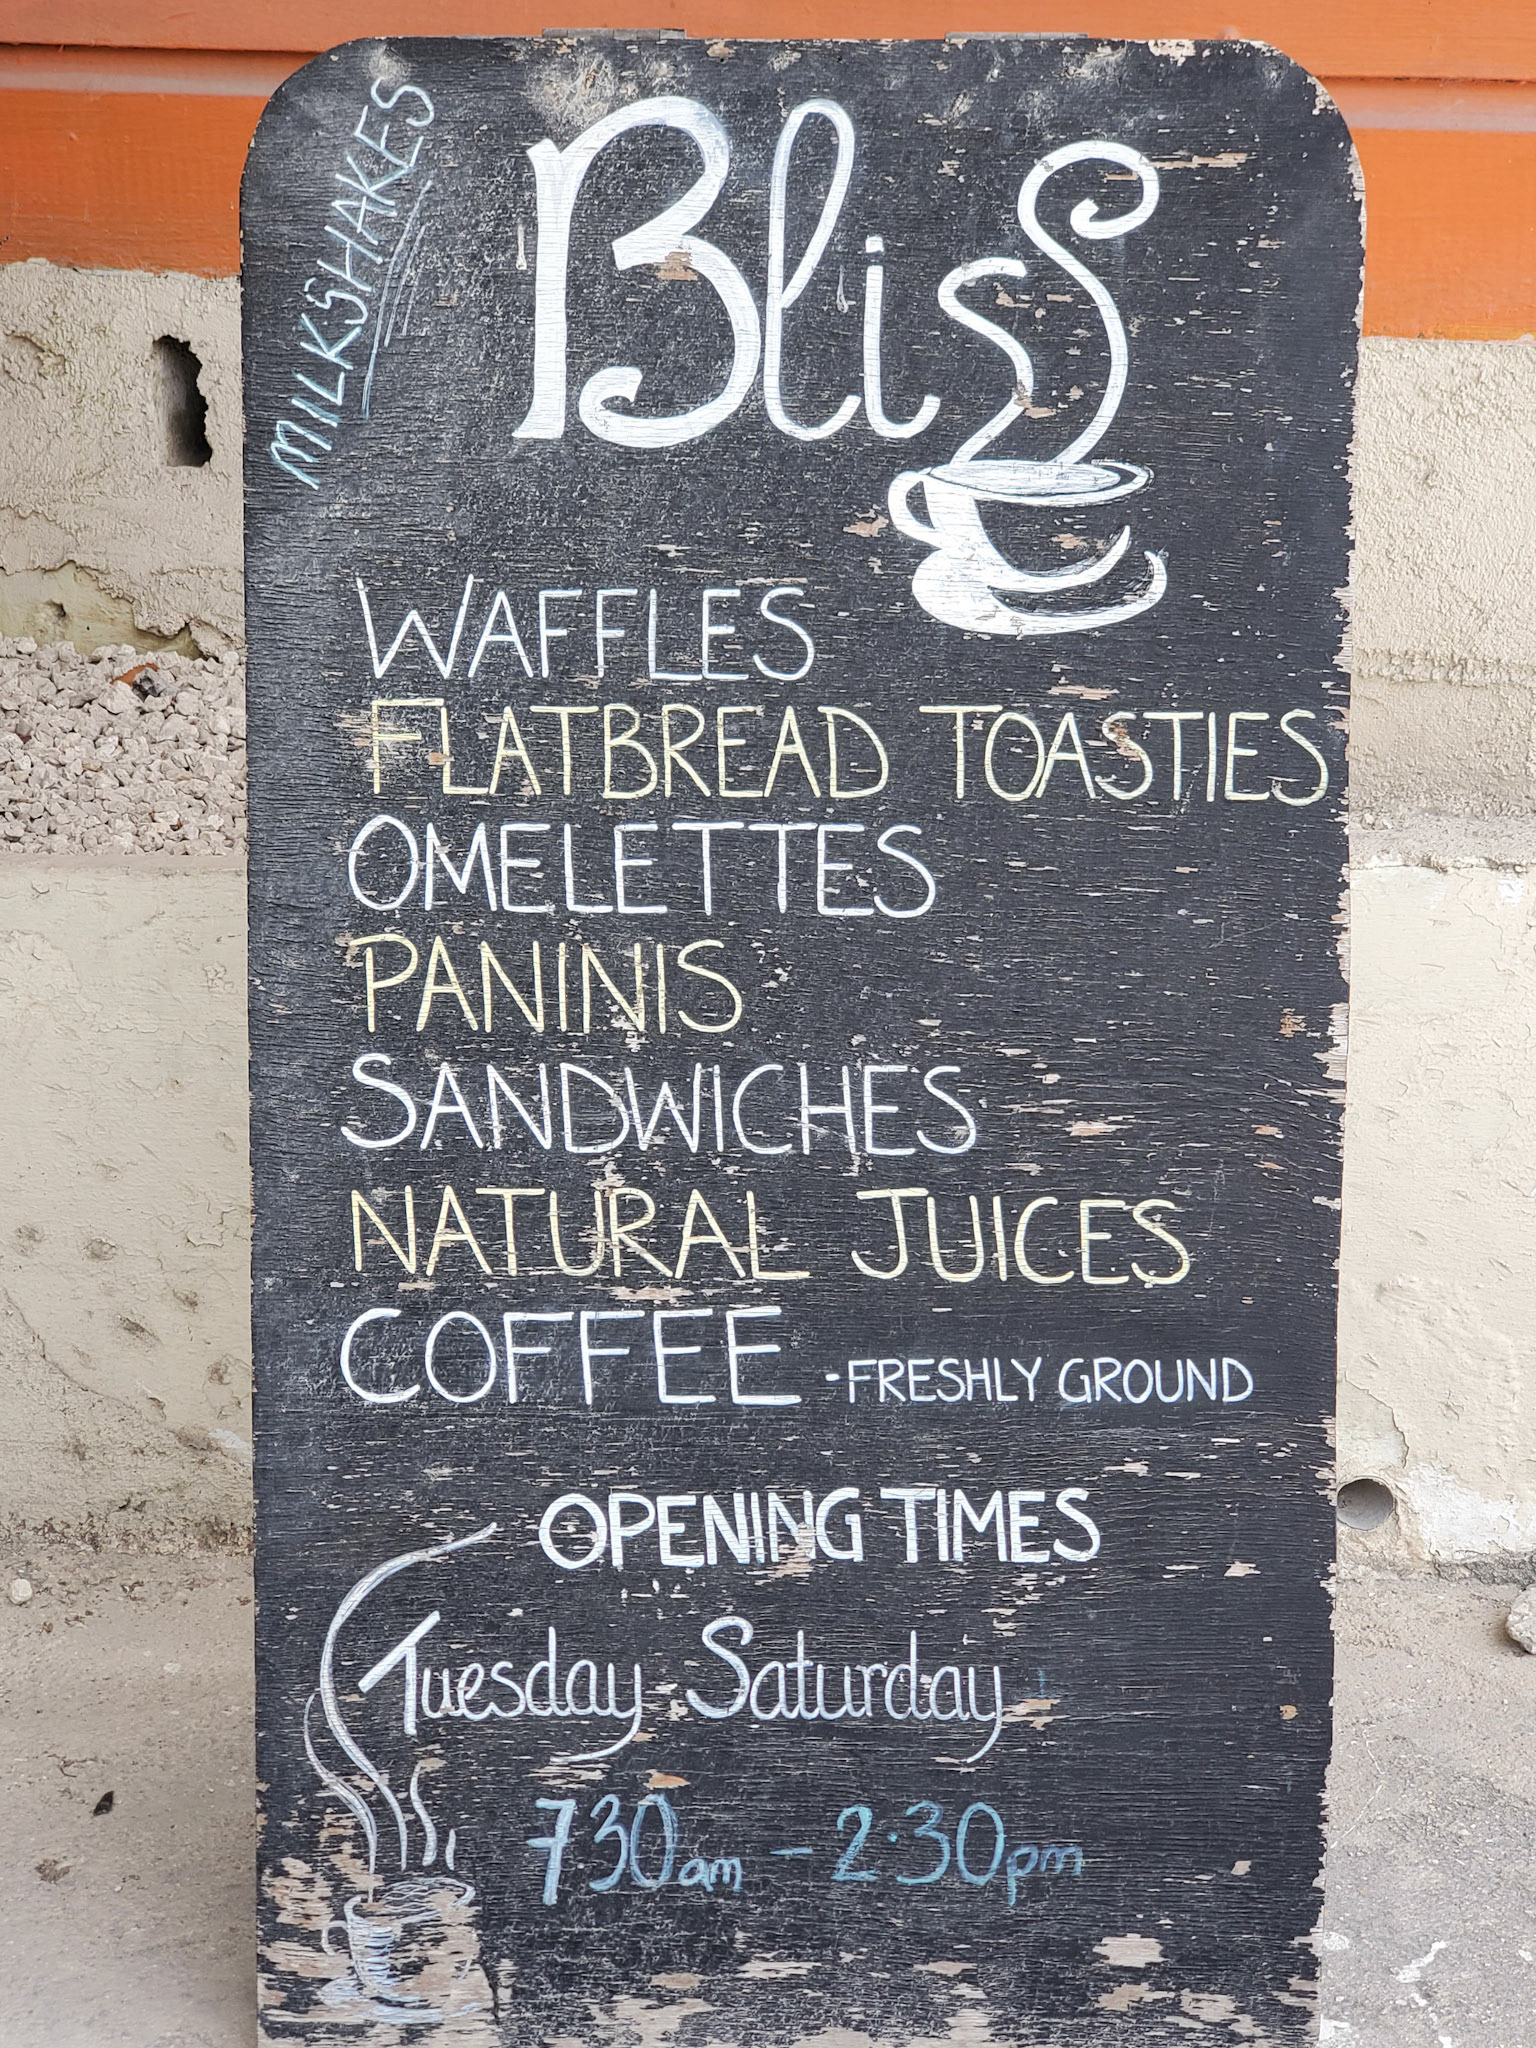 MILKSHAKES
Bliss
WAFFLES
FLATBREAD TOASTIES
OMELETTES
PANINIS
SANDWICHES
NATURAL JUICES
COFFEE - FRESHLY GROUND
OPENING TIMES
Tuesday Saturday
730am - 2.30pm